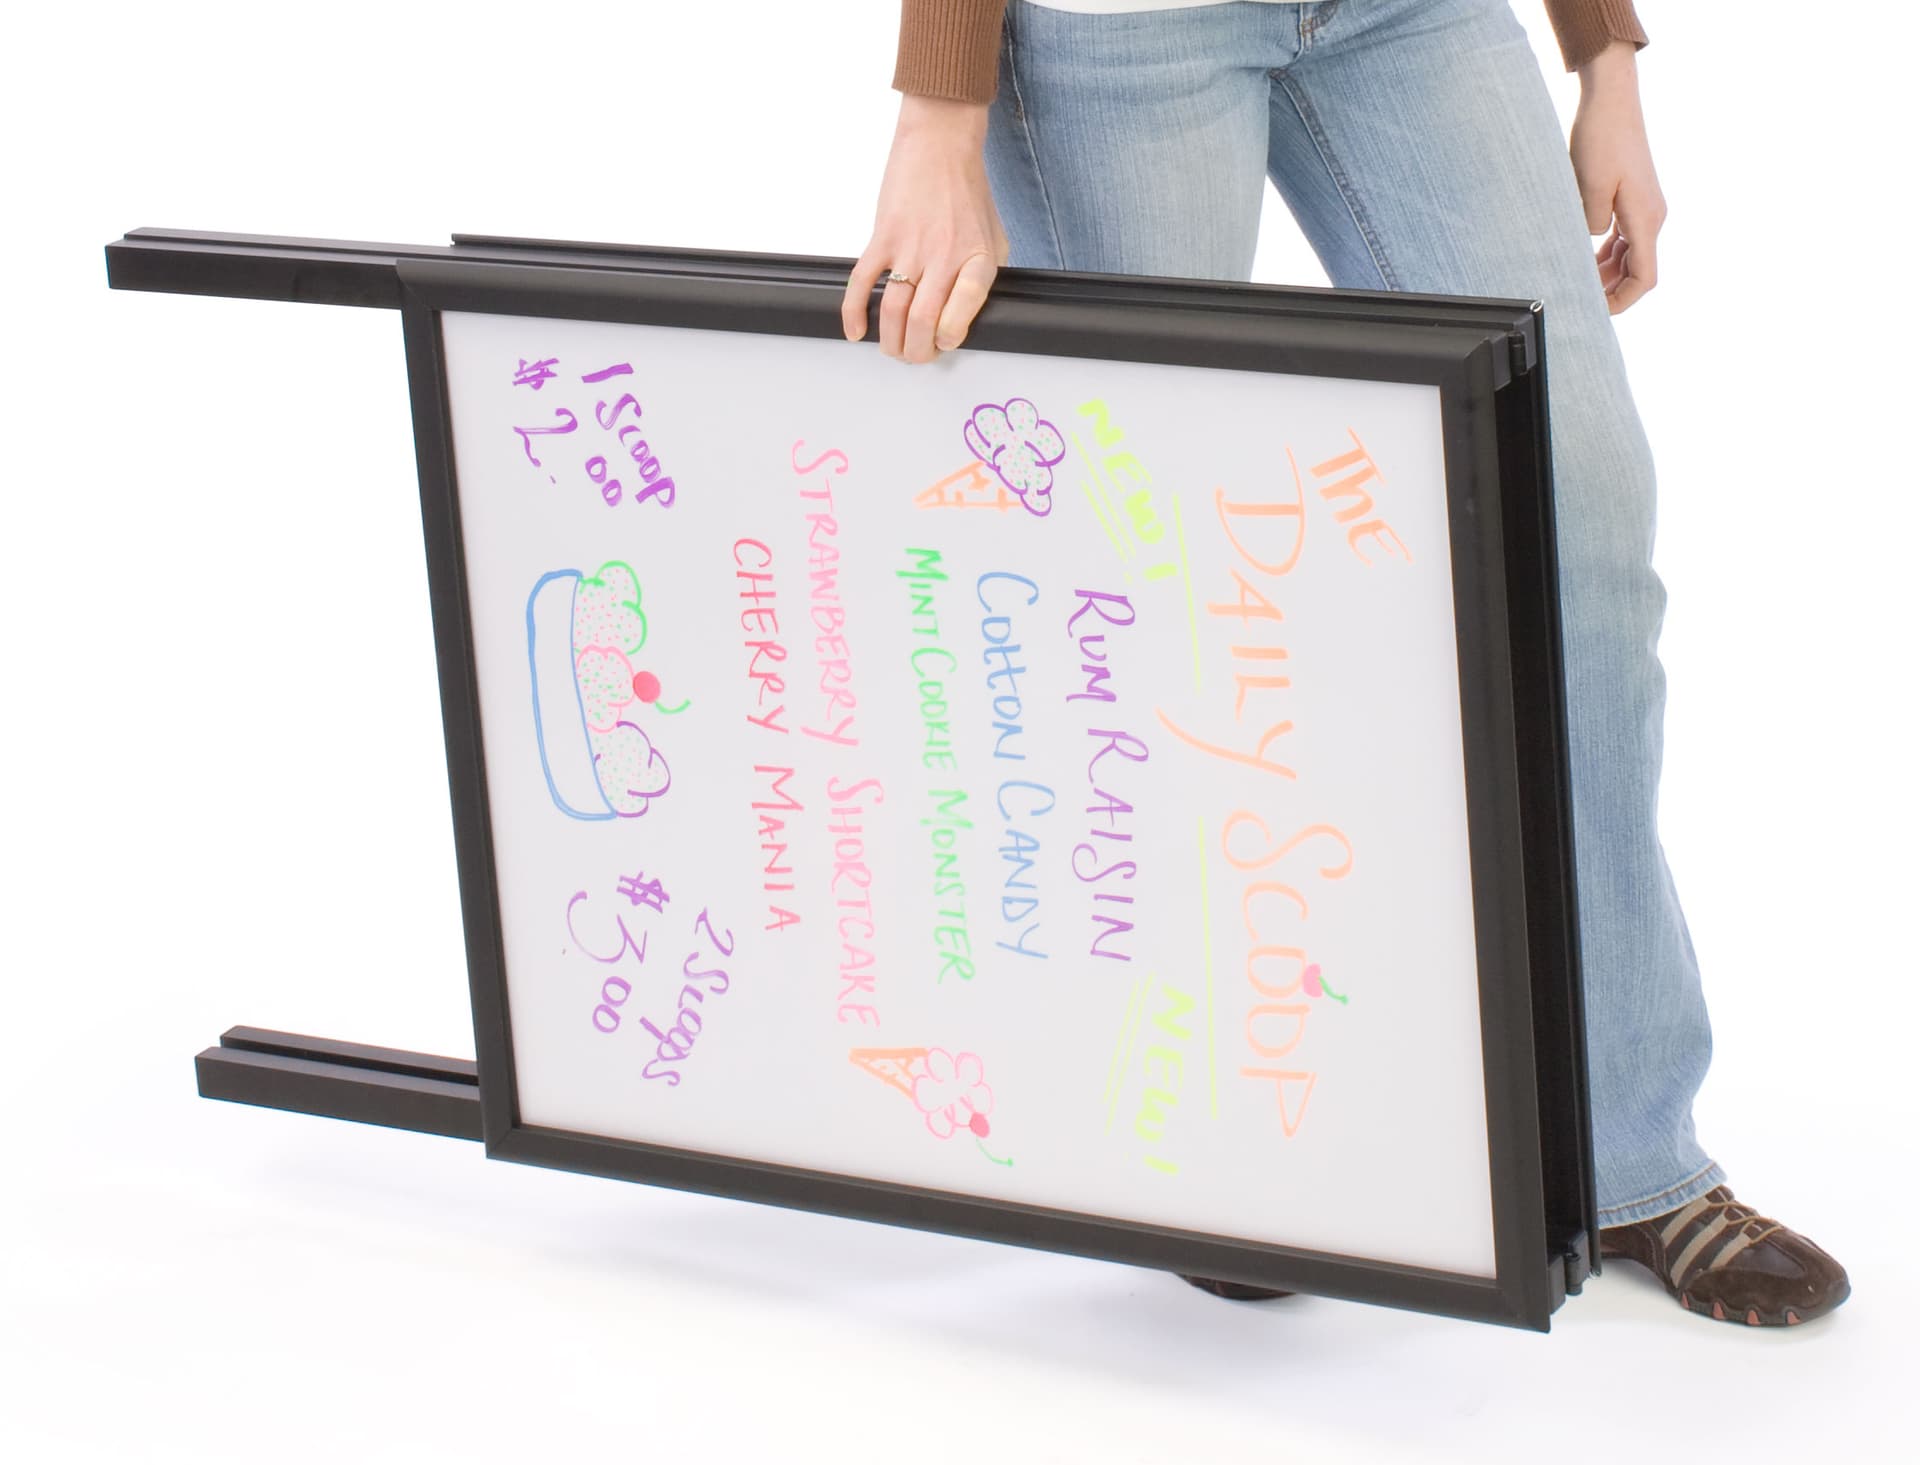 THE
DAILY SCOOP
NEW!
NEW!
RUM RAISIN
COTTON CANDY
MINT COOKIE MONSTER
STRAWBERRY SHORTCAKE
CHERRY MANIA
1 Scoop
$2.00
2 Scoops
$3.00